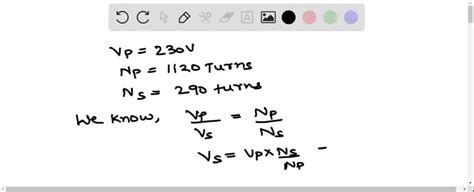 Vp = 230V
Np = 1120 Turns
Ns = 290 turns
We know, Vp/Vs = Np/Ns
Vs = Vp x Ns/Np =